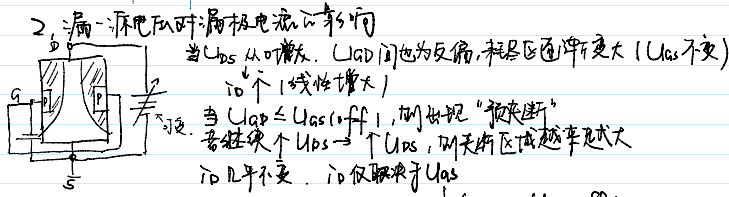 2、漏-源电压对漏极电流的影响
当UDS从0增大，UGD间也为反偏，耗尽区逐渐变大（UGS不变）
iD↑（线性增大）
当UGD≤UGS(off)，则出现“预夹断”
若继续↑UDS→↑UDS，则夹断区域越来越大
iD几乎不变．iD仅取决于UGS
D
G
P
P
可变
S